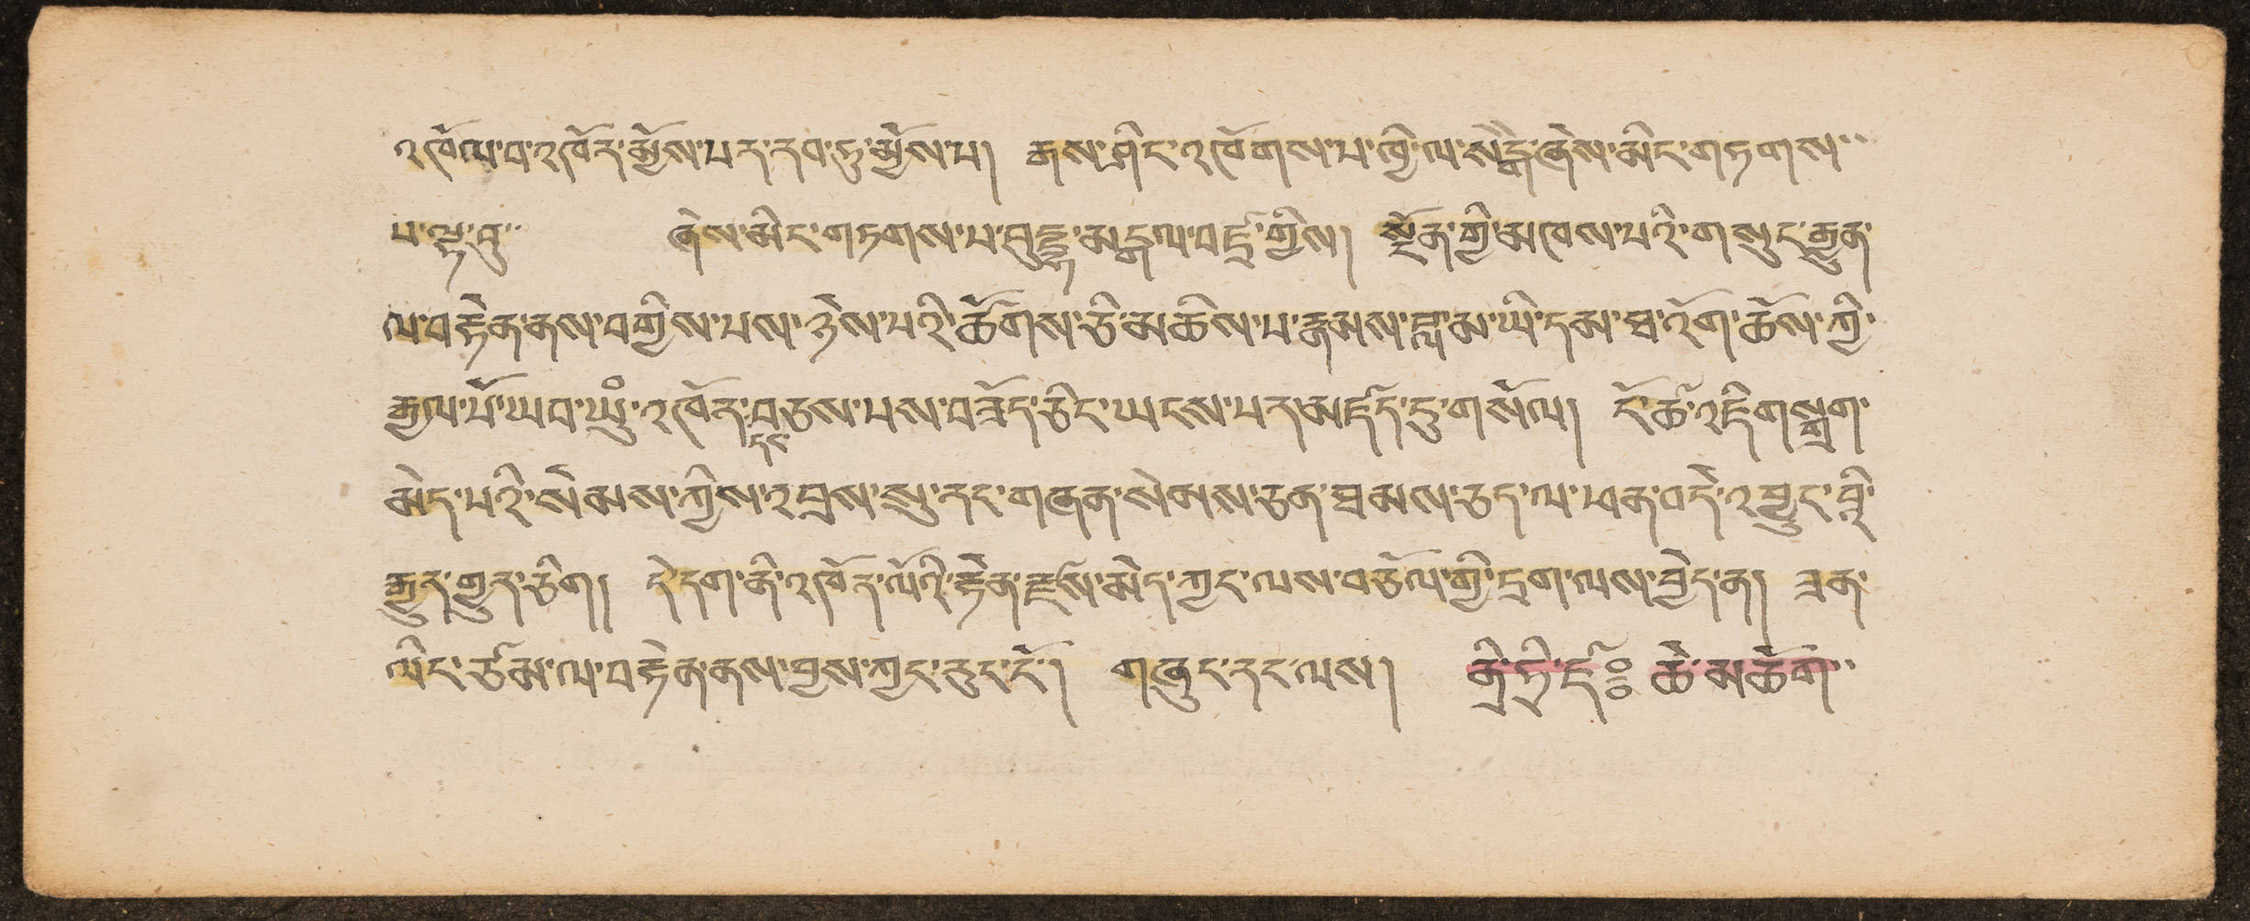 འཁོལ་བ་འཁོར་མྱོས་པར་རབ་ཏུ་མྱོས་པ། ནས་ཤིང་འཁོགས་པ་ཁྱི་ལ་སེངྒེ་ཞེས་མིང་གཏགས་
པ་ལྟ་བུ་ ཞེས་མིང་གཏགས་པ་བུདྡྷ་མངྒལ་བདྲ་གྱིས། སྔོན་གྱི་མཁས་པའི་གསུང་རྒྱུན་
ལ་བརྟེན་ནས་བགྱིས་པས་ཉེས་པའི་ཚོགས་ཅི་མཆིས་པ་རྣམས་བླ་མ་ཡི་དམ་ཐ་འོག་ཆོས་ཀྱི་
རྒྱལ་པོ་ཡབ་ཡུྃ་འཁོར་བཅས་པས་བཟོད་ཅིང་ཡངས་པར་མཛོད་དུ་གསོལ། ངོ་ཚ་འཛིག་སྐྲག་
དང་
མེད་པའི་སེམས་ཀྱིས་འབྲས་སུ་རང་གཞན་སེམས་ཅན་ཐམས་ཅད་ལ་ཕན་བདེ་འབྱུང་བའི་
རྒྱུར་གྱུར་ཅིག། དེ་དག་ནི་འཁོར་ལོའི་རྟེན་རྫས་མེད་ཀྱང་ལས་བཅོལ་གྱི་དྲག་ལས་བྱེད་ན། ཟན་
ལིང་ཙམ་ལ་བརྟེན་ནས་བྱས་ཀྱང་རུང་ངོ་། གཞུང་རང་ལས། ནྲི་ཏྲི་ཛཿ ཆེ་མཆོག་